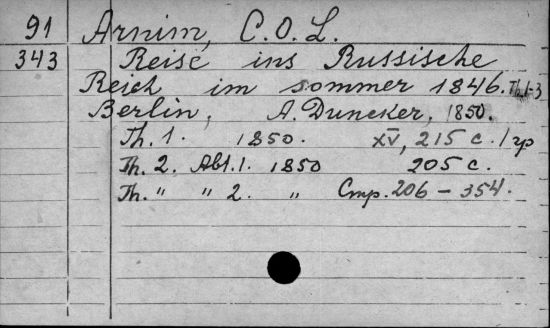 91 Arnim, C. O. L.
343 Reise ins Russische
Reich im sommer 1846. Th. 1-3
Berlin, A. Duncker, 1850.
Th. 1. 1850. XV, 215 с. 1 гр
Th. 2. Abt. 1. 1850 205 с.
Th. " " 2. " Стр. 206 – 354.